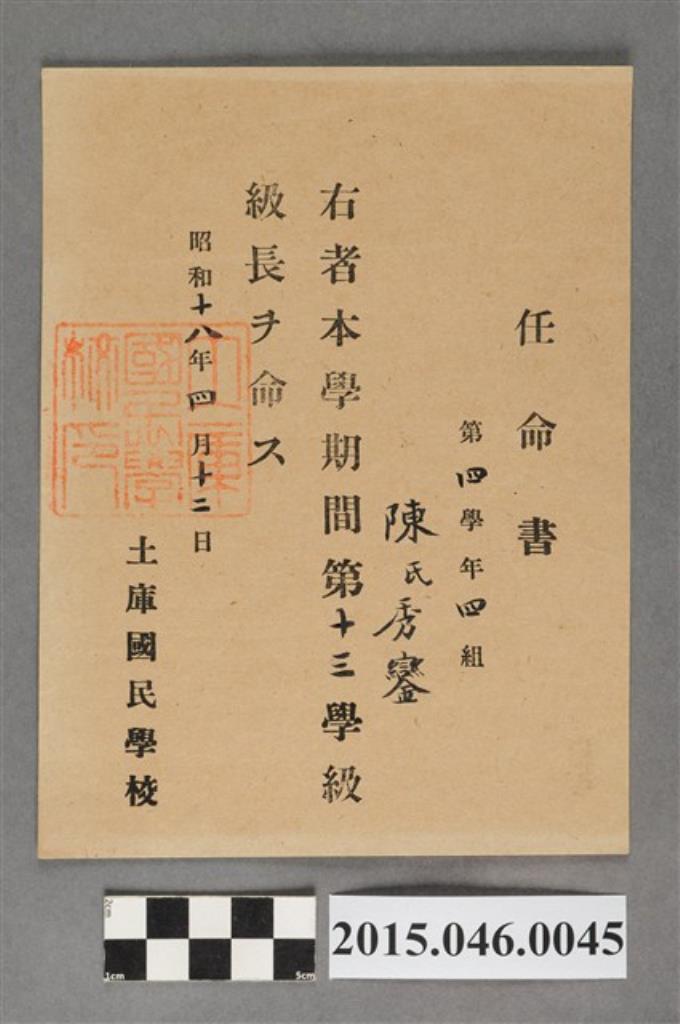 任命書
第四學年四組
陳氏秀鑾
右者本學期間第十三學級
級長ヲ命ス
昭和十八年四月十二日
土庫國民學校
2cm
1cm
5cm
2015.046.0045